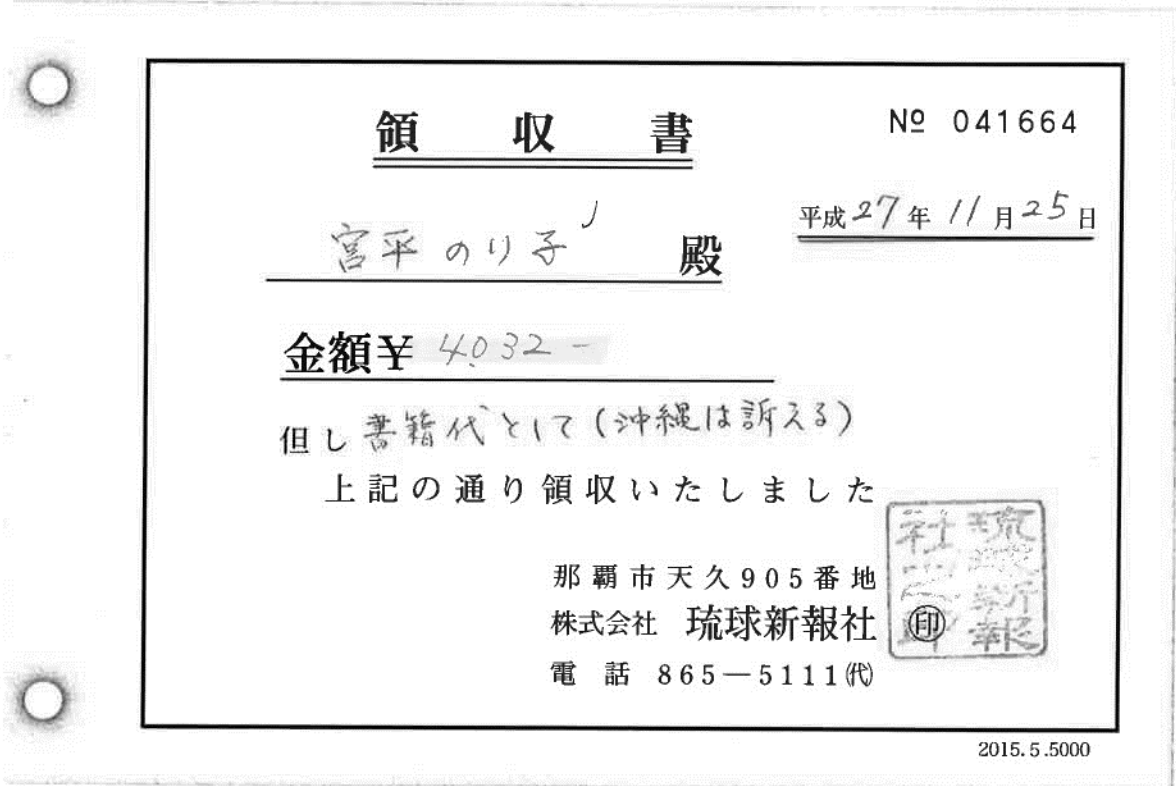 領収書
№ 041664
平成27年11月25日
宮平のり子 殿
金額¥ 4,032 -
但し 書籍代として(沖縄は訴える)
上記の通り領収いたしました
那覇市天久905番地
株式会社 琉球新報社 ㊞
電話 865―5111㈹
琉球新報
社之印
2015.5.5000